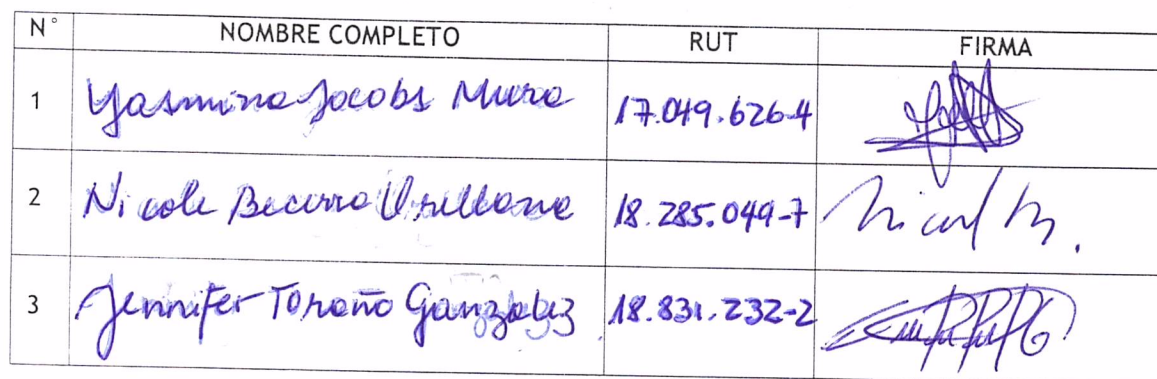 N° NOMBRE COMPLETO RUT FIRMA
1 Yasmina Jacobs Mura 17.049.626-4
2 Nicole Becerra Orellana 18.285.049-7
3 Jennifer Toraño Ganzalez 18.831.232-2